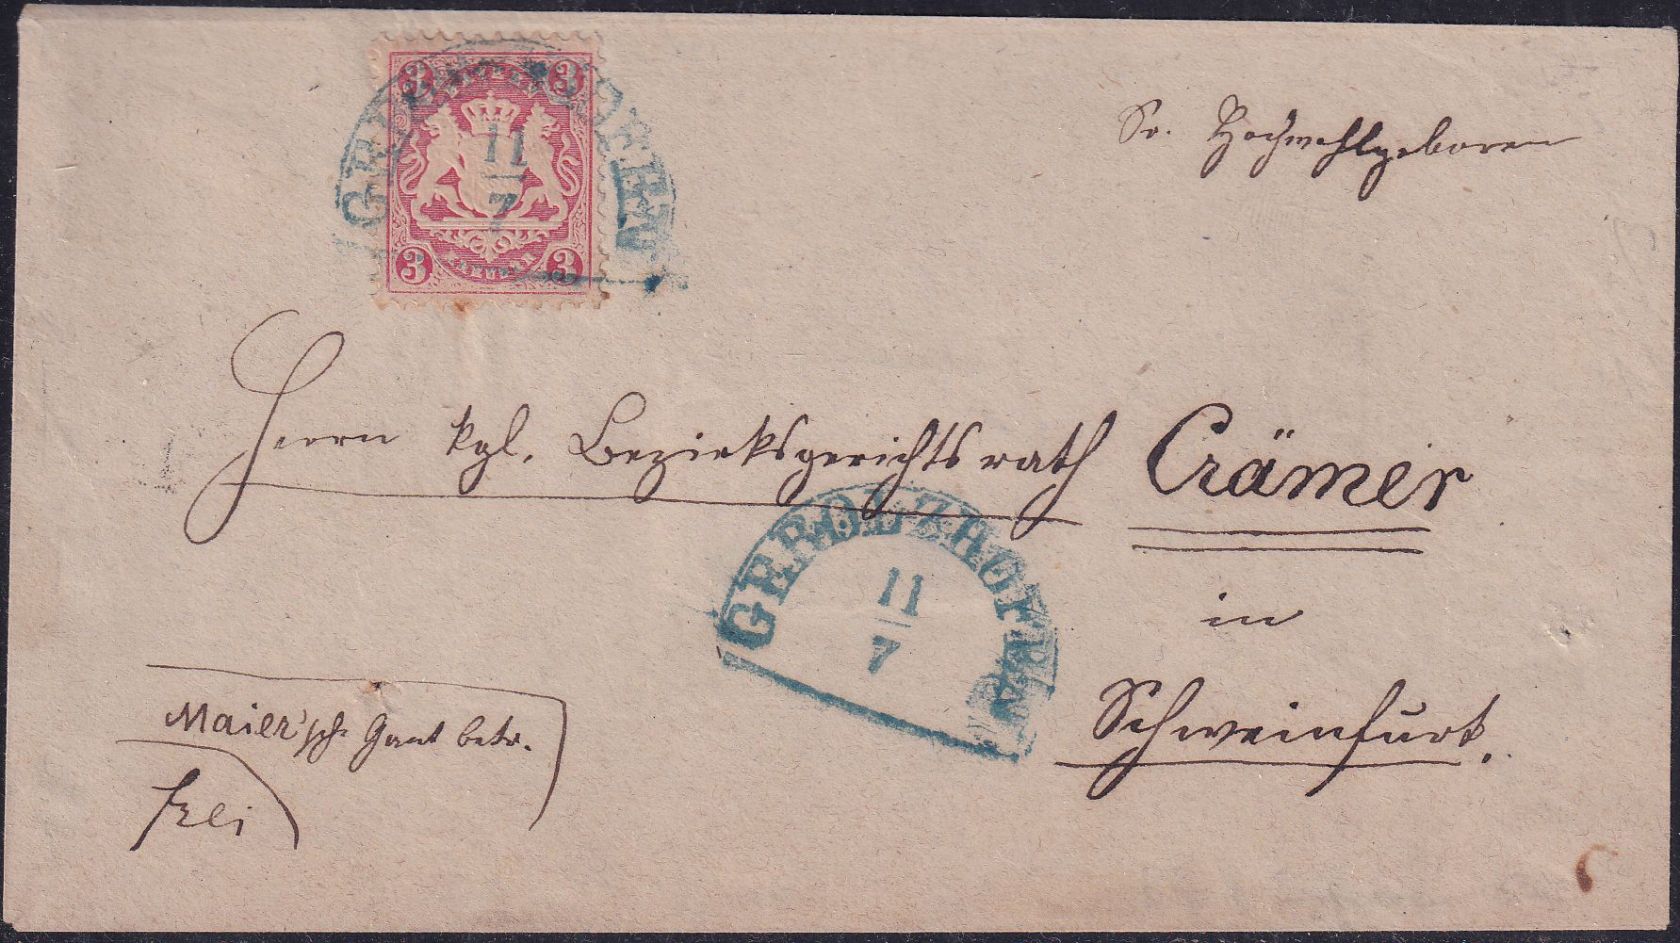 3 3
BAYERN
GEROLZHOFEN
11
7
3 KREUZER 3
Sr. Hochwohlgeboren
Herrn kgl. Bezirksgerichtsrath Crämer
GEROLZHOFEN
11
7
in
Schweinfurt.
Maier'sche Gant betr.
frei